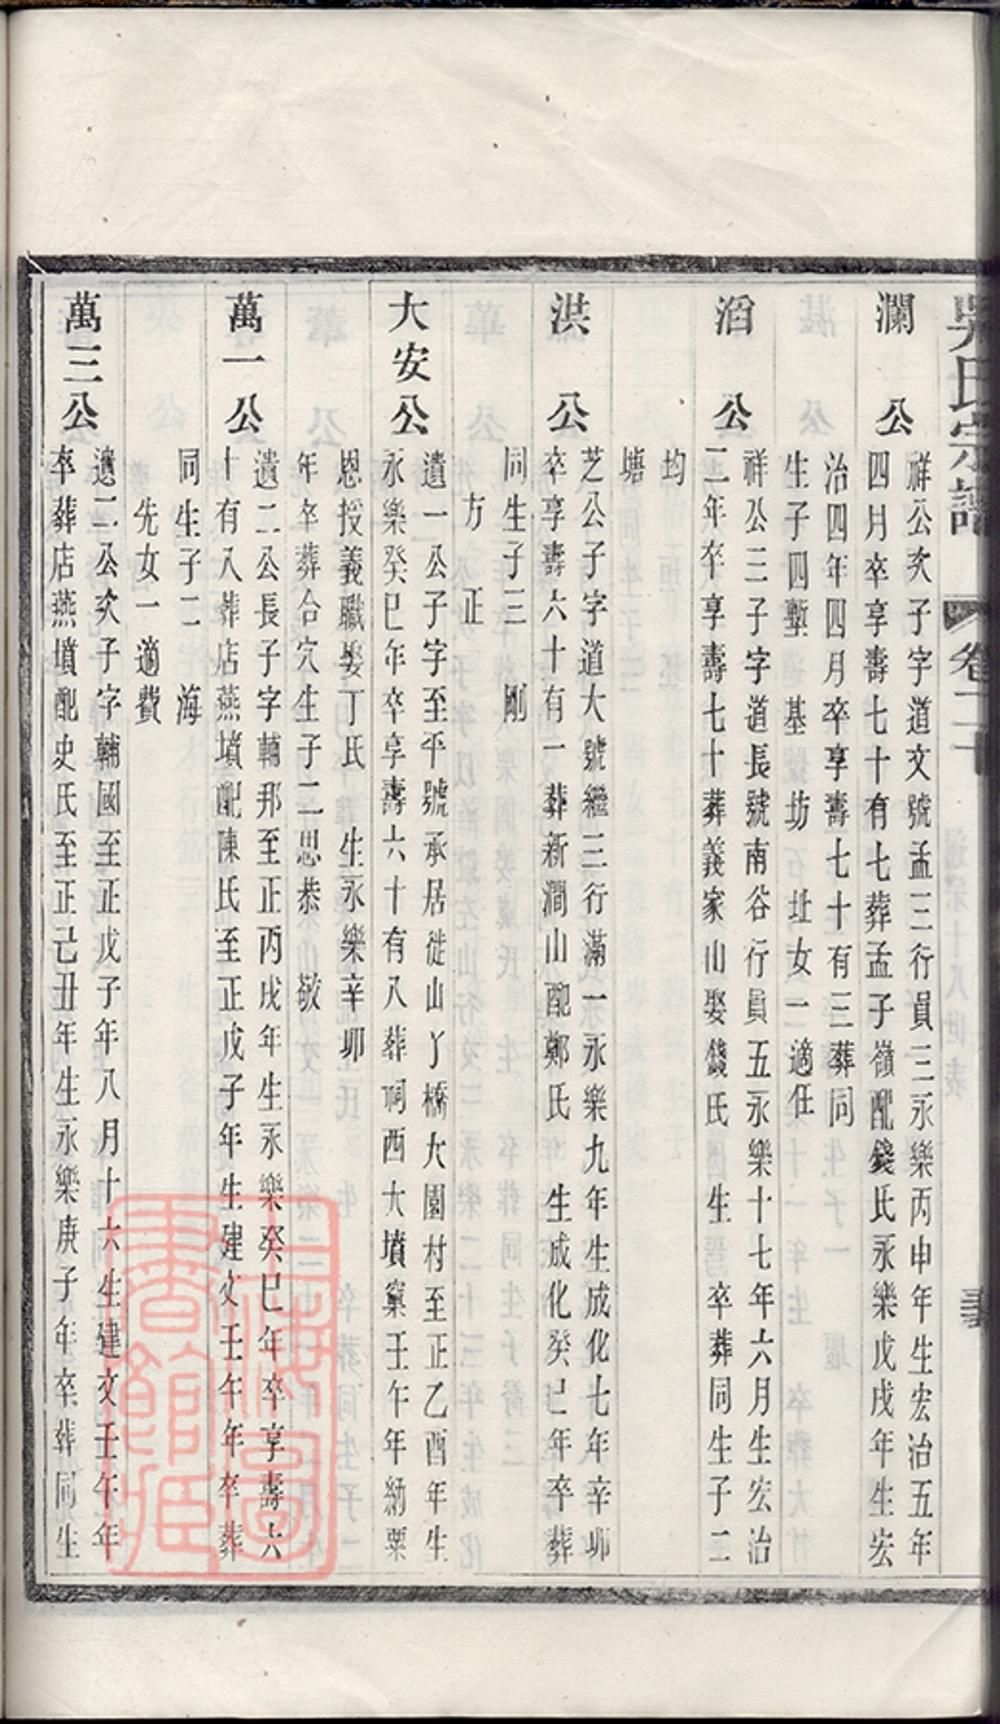 吳氏宗譜 卷二十
瀾公
祥公次子字道文號孟三行員三永樂丙申年生宏治五年
四月卒享壽七十有七葬孟子嶺配錢氏永樂戊戌年生宏
治四年四月卒享壽七十有三葬同
生子四塹 基 坊 址女一適任
滔公
祥公三子字道長號南谷行員五永樂十七年六月生宏治
二年卒享壽七十葬義家山娶錢氏 生 卒葬同生子二
均
塘
洪公
芝公子字道大號繼三行滿一永樂九年生成化七年辛卯
卒享壽六十有一葬新澗山配鄭氏 生成化癸巳年卒葬
同生子三 剛
方 正
大安公
遺一公子字至平號承居徙山丫橋大園村至正乙酉年生
永樂癸巳年卒享壽六十有八葬村西大墳窠壬午年納粟
恩授義職娶丁氏 生永樂辛卯
年卒葬合穴生子二思恭 敬
萬一公
遺二公長子字輔邦至正丙戌年生永樂癸巳年卒享壽六
十有八葬店燕墳配陳氏至正戊子年生建文壬午年卒葬
同生子二 海
先女一適費
萬三公
遺二公次子字輔國至正戊子年八月十六生建文壬午年
卒葬店燕墳配史氏至正己丑年生永樂庚子年卒葬同生
上海圖書館藏